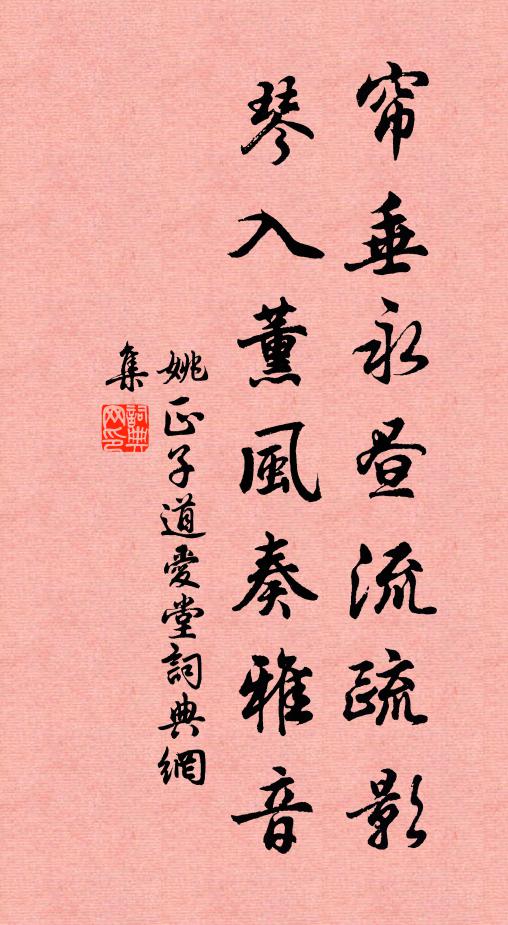 帘垂永昼流疏影
琴入薰風奏雅音
姚正子道愛堂詞典網
集
詞典
网印